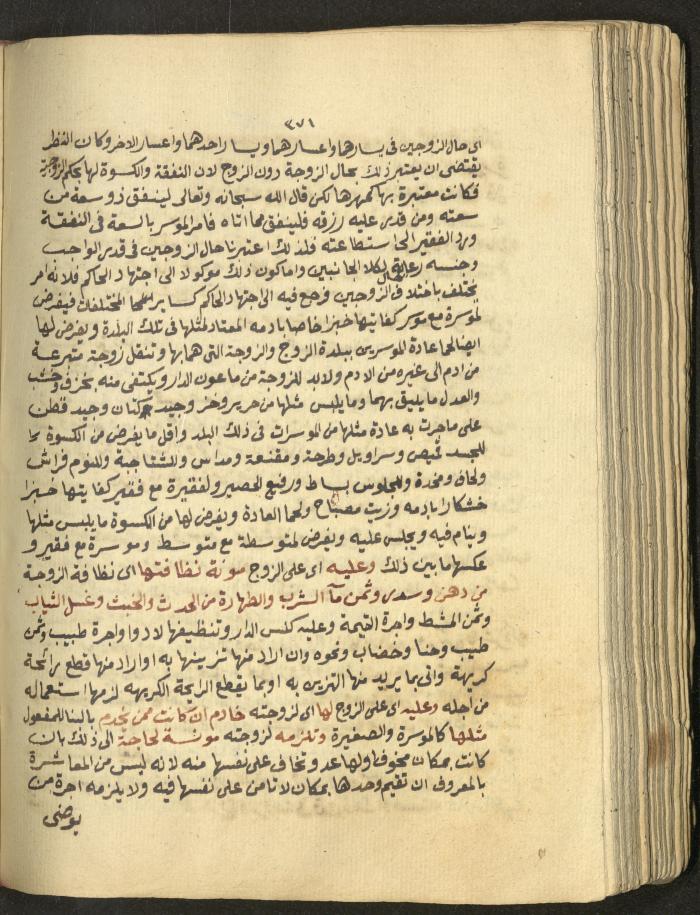 ٣٧١
اى حال الزوجين فى يسارهما واعسارهما ويسار احدهما واعسار الاخر وكان النظر
يقتضى ان يعتبر ذلك بحال الزوجة دون الزوج لان النفقة والكسوة لها بحكم الزوجية
فكانت معتبرة بها كمهرها لكن قال الله سبحانه وتعالى لينفق ذو سعة من
سعته ومن قدر عليه رزقه فلينفق مما اتاه فامر الموسر بالسعة فى النفقة
ورد الفقير الى استطاعته فلذلك اعتبرنا حال الزوجين فى قدر الواجب
وجنسه رعاية لكلا الجانبين واما كون ذلك موكولا الى اجتهاد الحاكم فلانه امر
يختلف باختلاف حال الزوجين فرجع فيه الى اجتهاد الحاكم كسائر المختلفات فيفرض
لموسرة مع موسر كفايتها خبزا خاصا بادمه المعتاد لمثلها فى تلك البلدة ويفرض لها
ايضا لحما عادة الموسرين ببلدة الزوج والزوجة التى هما بها وتنقل زوجة متبرمة
من ادم الى غيره من الادم ولابد للزوجة من ماعون الدار ويكتفى منه بخزف وخشب
والعدل ما يليق بهما وما يلبس مثلها من حرير وخز وجيد كتان وجيد قطن
على ما جرت به عادة مثلها من الموسرات فى ذلك البلد واقل ما يفرض من الكسوة
للجسد قميص وسراويل وطرحة ومقنعة ومداس وللشتا جبة وللنوم فراش
ولحاف ومخدة وللجلوس بساط ورفيع الحصير ولفقيرة مع فقير كفايتها خبزا
خشكارا بادمه وزيت مصباح ولحما العادة ويفرض لها من الكسوة ما يلبس مثلها
وينام فيه ويجلس عليه ويفرض لمتوسطة مع متوسط وموسرة مع فقير و
عكسها ما بين ذلك وعليه اى على الزوج مونة نظافتها اى نظافة الزوجة
من دهن وسدر وثمن مآ الشرب والطهارة من الحدث والخبث وغسل الثياب
وثمن المشط واجرة القيمة وعليه كنس الدار وتنظيفها لا دوا واجرة طبيب وثمن
طيب وحنا وخضاب ونحوه وان اراد منها تزينها به او اراد منها قطع رائحة
كريهة واتى بما يريد منها التزين به او بما يقطع الرايحة الكريهه لزمها استعماله
من اجله وعليه اى على الزوج لها اى لزوجته خادم ان كانت ممن يخدم بالبنا للمفعول
مثلها كالموسرة والصغيرة وتلزمه لزوجته مونسة لحاجة الى ذلك بان
كانت بمكان مخوف اولها عدو تخاف على نفسها منه لانه ليس من المعاشرة
بالمعروف ان تقيم وحدها بمكان لا تامن على نفسها فيه ولا يلزمه اجرة من
يوضى